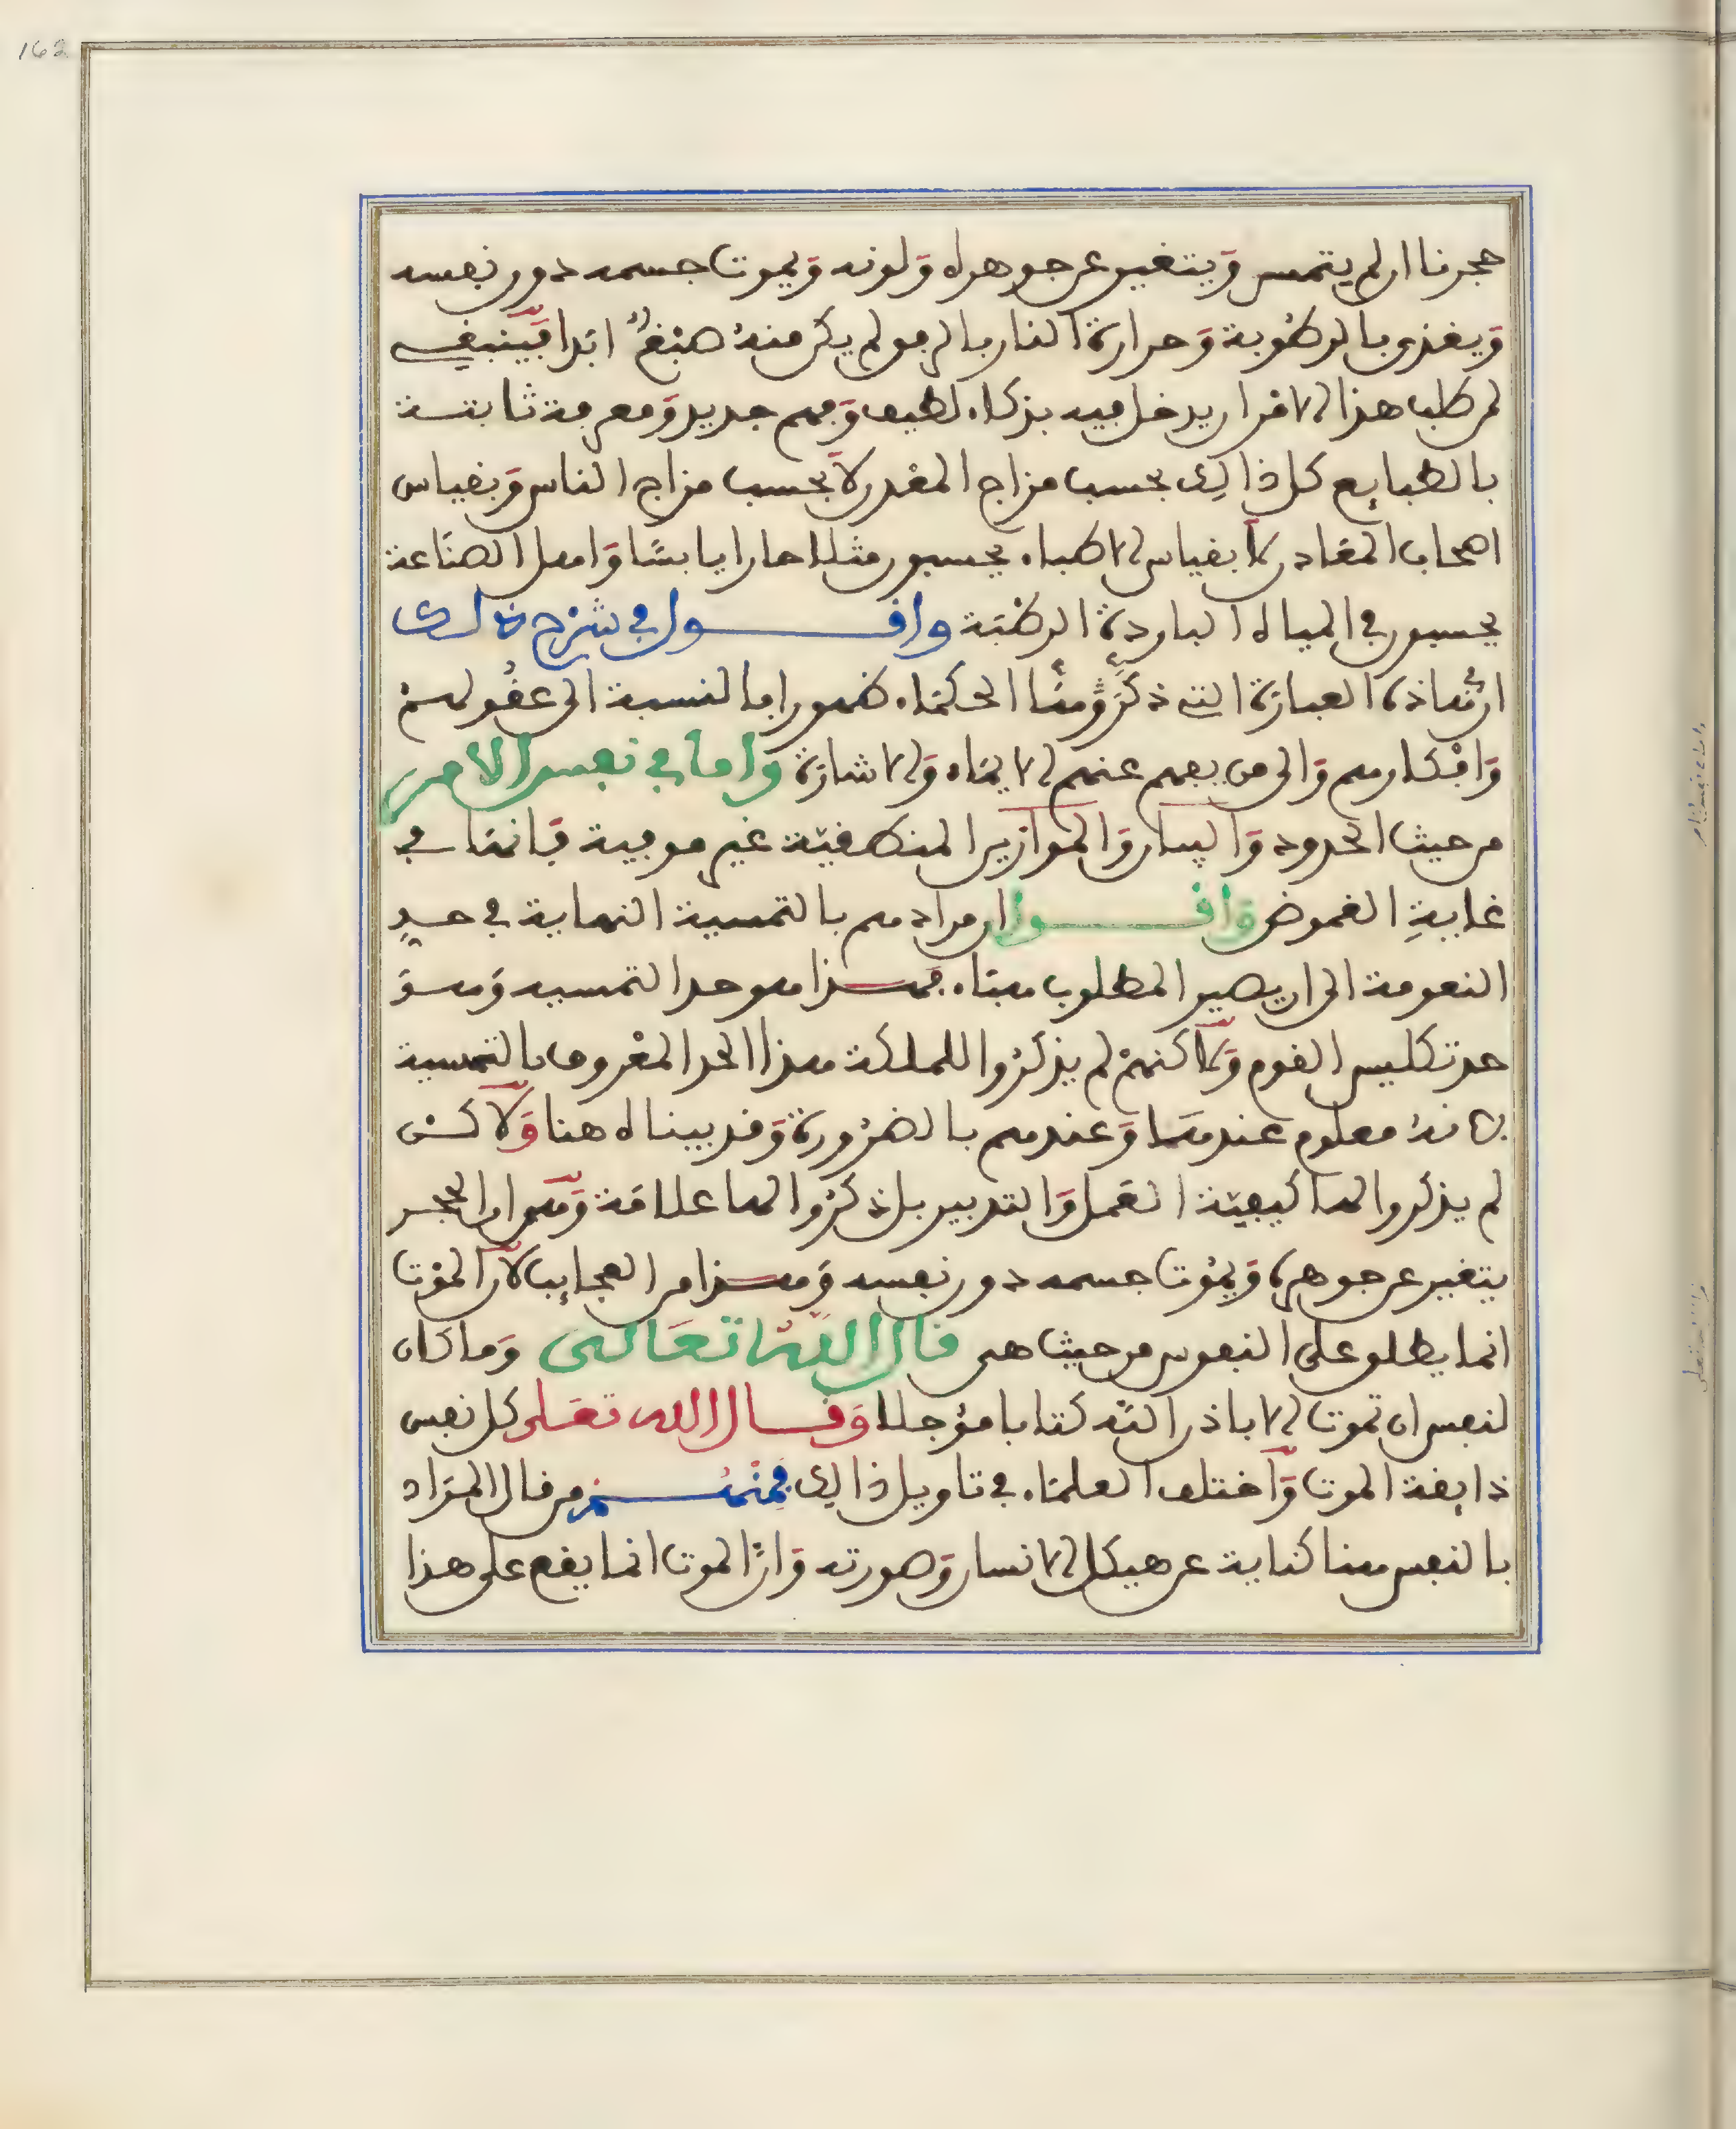 162
حجرنا ان لم يتمس وَيتغير عن جوهره وَلونه وَيموت جسمه دون نفسه
وَيغذى بالرطوبة وَحرارة النار بالرفق لم يكن منه صبغٌ ابدا فَينبغي
لمن طلب هذا الامر ان يدخل فيه بذكاء لطيف وَفهم جديد وَمعرفة ثابتة
بالطبايع كل ذالك بحسب مزاج المعدن لا بحسب مزاج الناس وَبقياس
اصحاب المعادن لا بقياس الاطباء يحسبون مثلا حارا يابسًا وَاهل الصنَاعة
يحسبون في المياه الباردة الرطبَة واقول في شرح ذالك
ان هَاذه العبارَة التي ذكرَوهَا الحكمَاء ظهورا بالنسبة الى عقُولهمْ
وَافْكارهم وَالى من يفهم عنهم الايمَاء وَالاشارَة وَاما في نفس الامر
من حيث الحدود وَالبيان وَالموازين المنطقيَة غير موفية فَانهَا في
غايةِ الغموض وَاقول ان مرادهم بالتمسية النهاية في حدِ
النعومة الى ان يصير المطلوب هبَاء فهذا هو حد التمسيه وَهوَ
حد تكليس القوم وَلاكنهمْ لم يذكرُوا للملكة هذا الحد المعْروف بالتمسية
لانهُ معلوم عندهَا وَعندهم بالضرُورة وَقد بيناه هنا وَلاكن
لم يذكروا لها كيفيَة العَمل وَالتدبير بل ذكرُوا لها علامَة وَهو ان الحجر
يتغير عن جوهره وَيمُوت جسمه دون نفسه وَهذا من العجايب لان الموْت
انما يطلق على النفوس من حيث هي قال اللهُ تعَالى وَما كان
لنفس ان تموت الا باذن الله كتابا مؤجلا وَقال الله تعَلى كل نفس
ذايقة الموت وَاختلف العلمَاء في تاويل ذالك فَمنْهُم من قال المرَاد
بالنفس هنا كناية عن هيكل الانسان وَصورته وَان الموت انما يقع على هذا